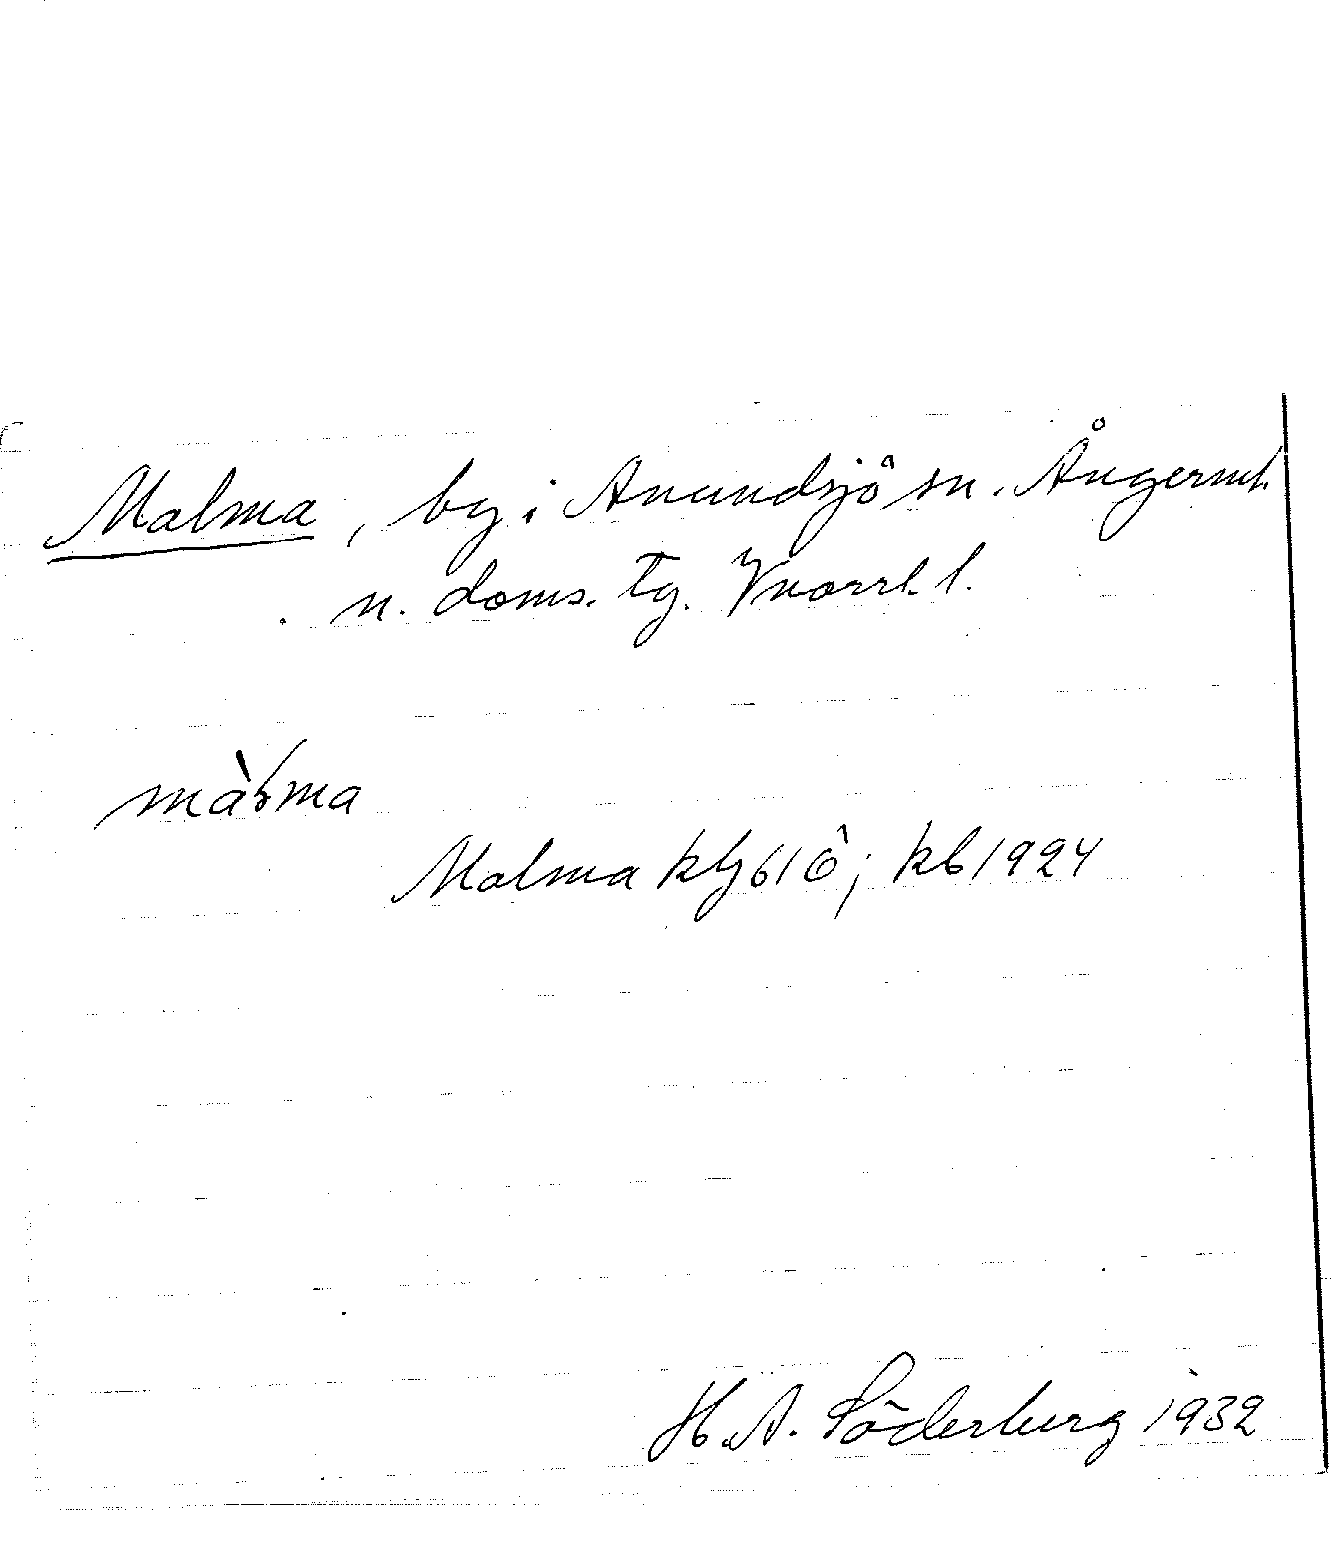 Malma, by i Anundsjö sn. Ångerml.
n. doms. tg. Vnorrl. l.
màƚma
Malma kbg 616; kb 1924
H. A. Söderberg 1932